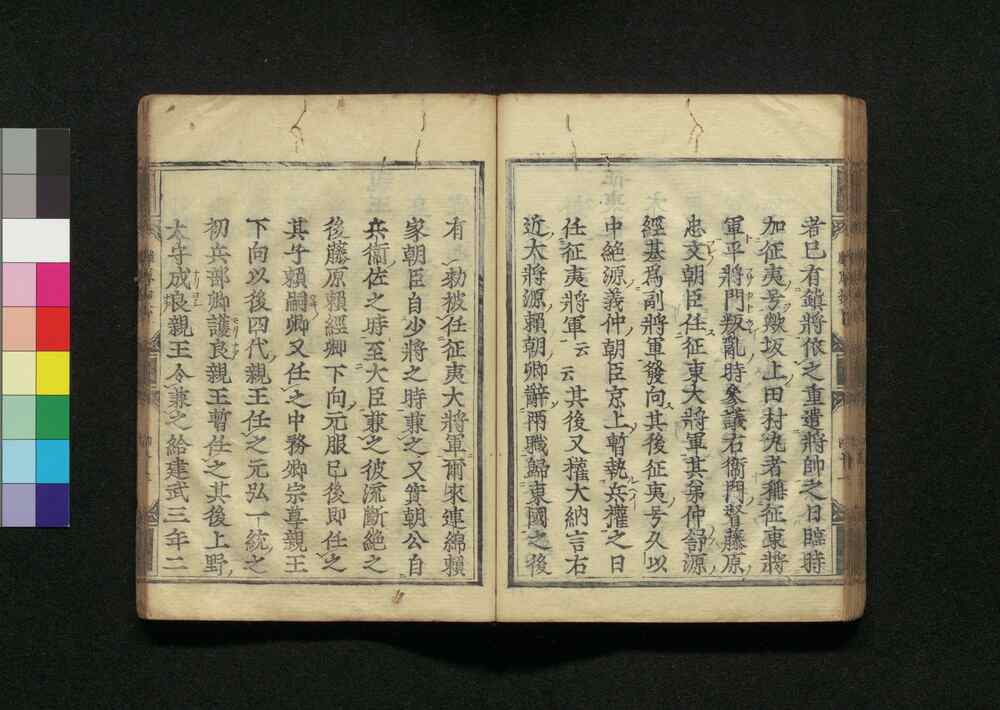 者已有鎮將依之重遣將帥之日臨時
加征夷号歟坂上田村丸者稱征東將
軍平將門叛亂時參議右衞門督藤原
忠文朝臣任征東大將軍其弟仲舒源
經基爲副將軍發向其後征夷号久以
中絶源義仲朝臣京上暫執兵權之日
任征夷將軍云云其後又權大納言右
近大將源賴朝卿辭兩職歸東國之後
有 勅被任征夷大將軍爾來連綿賴
家朝臣自少將之時兼之又實朝公自
兵衞佐之時至大臣兼之彼流斷絶之
後藤原賴經卿下向元服已後即任之
其子賴嗣卿又任之中務卿宗尊親王
下向以後四代親王任之元弘一統之
初兵部卿護良親王暫任之其後上野
太守成良親王令兼之給建武三年二